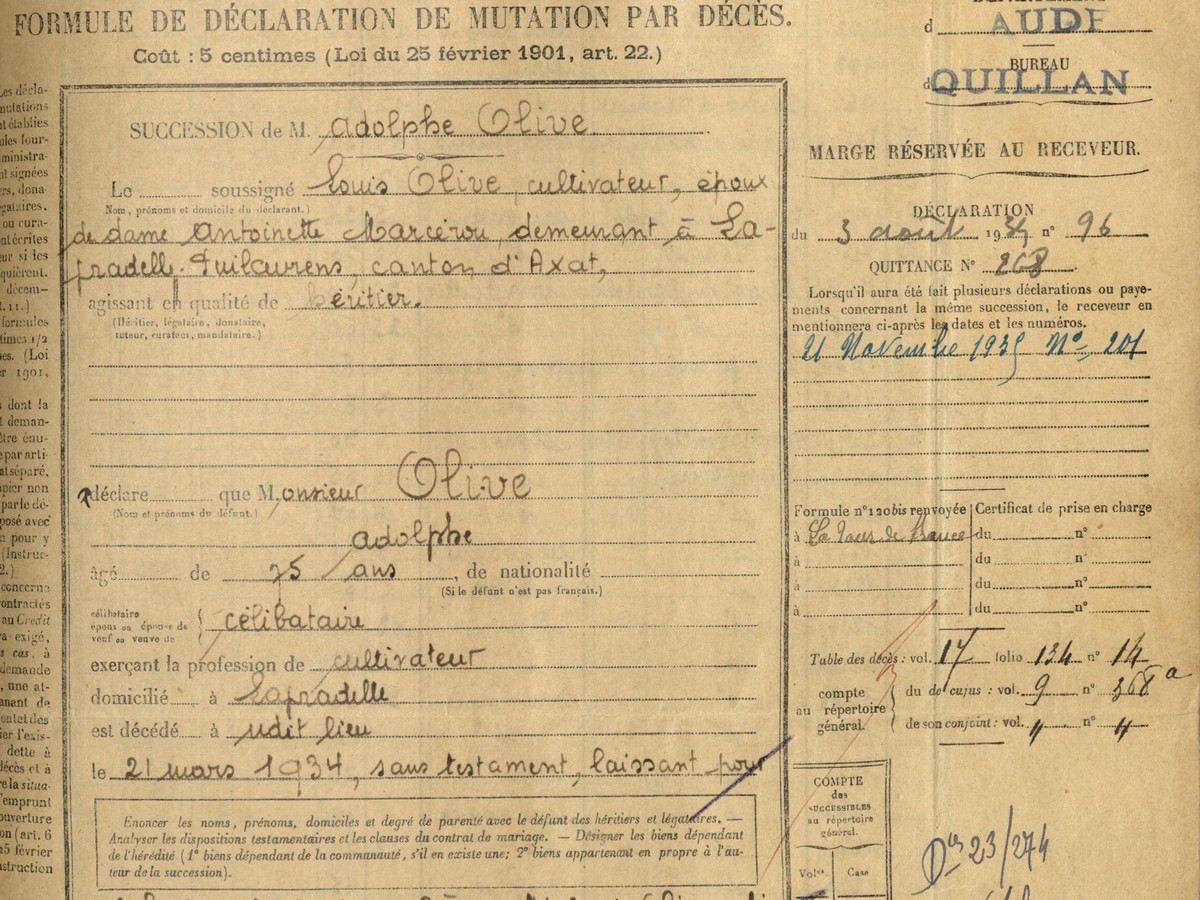 FORMULE DE DÉCLARATION DE MUTATION PAR DÉCÈS.
Coût : 5 centimes (Loi du 25 février 1901, art. 22.)
SUCCESSION de M. Adolphe Olive
Le soussigné Louis Olive, cultivateur, époux
Nom, prénoms et domicile du déclarant.)
de dame Antoinette Marcérou, demeurant à La-
pradelle-Puilaurens, canton d'Axat,
agissant en qualité de héritier.
(Héritier, légataire, donataire,
tuteur, curateur, mandataire.)
déclare que Monsieur Olive
(Nom et prénoms du défunt.)
Adolphe
âgé de 75 ans, de nationalité
(Si le défunt n'est pas français.)
célibataire
époux ou épouse de
veuf ou veuve de
célibataire
exerçant la profession de cultivateur
domicilié à Lapradelle
est décédé à udit lieu
le 21 mars 1934, sans testament, laissant pour
Enoncer les noms, prénoms, domiciles et degré de parenté avec le défunt des héritiers et légataires. —
Analyser les dispositions testamentaires et les clauses du contrat de mariage. — Désigner les biens dépendant
de l'hérédité (1° biens dépendant de la communauté, s'il en existe une; 2° biens appartenant en propre à l'au-
teur de la succession).
d AUDE
BUREAU
d QUILLAN
MARGE RÉSERVÉE AU RECEVEUR.
DÉCLARATION
du 3 août 193 n° 96
QUITTANCE N° 268
Lorsqu'il aura été fait plusieurs déclarations ou paye-
ments concernant la même succession, le receveur en
mentionnera ci-après les dates et les numéros.
21 Novembre 1935 N° 201
Formule n° 120 bis renvoyée
à La Tour de France
à
à
à
Certificat de prise en charge
du n°
du n°
du n°
du n°
Table des décès : vol. 17 folio 134 n° 14
compte
au répertoire
général.
du de cujus : vol. 9 n° 368 a
de son conjoint : vol. 〃 n° 〃
COMPTE
des
SUCCESSIBLES
au répertoire
général.
Vol. Case
23/274